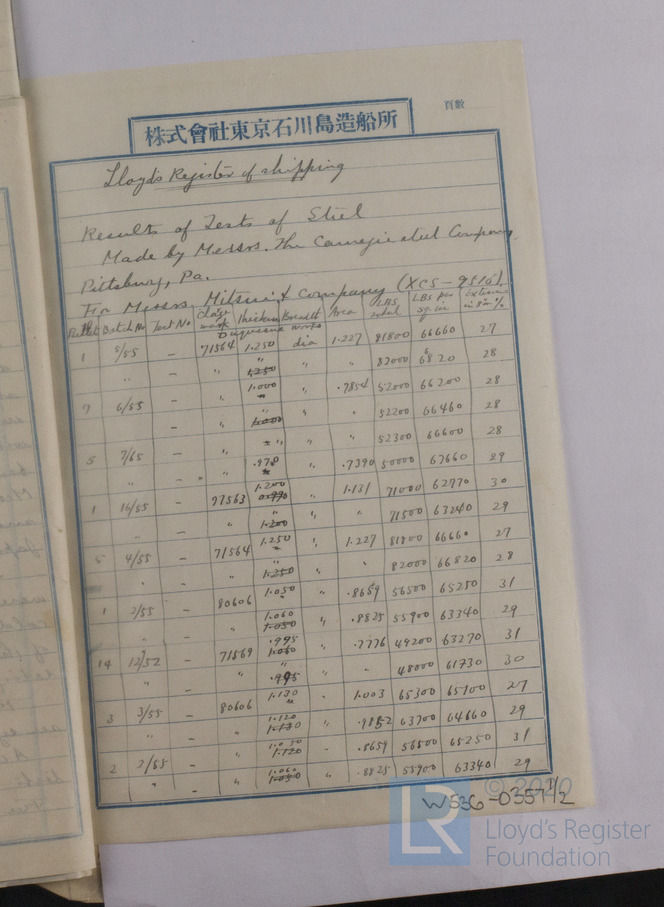 頁數
株式會社東京石川島造船所
Lloyd's Register of shipping
Results of Tests of Steel
Made by Messrs. The Carnegie steel Company
Pittsburg, Pa.
For Messrs Mitsui & Company (XCS-9516)
Batch No Test No Charge Thickness Breadth Area LBS total LBS per sq in
Duquesne works
1 5/55 - 71564 1.250 dia 1.227 81800 66660 27
" - " 1.250 " " 82000 66820 28
7 6/55 - " 1.000 " .7854 52000 66200 28
- " 1.000 " " 52200 66460 28
5 7/65 - " " " 52300 66600 28
" - " .970 " .7390 50000 67660 29
1 16/55 - 71563 1.200 " 1.131 71000 62770 30
" - " 1.200 " " 71500 63240 29
5 4/55 - 71564 1.250 " 1.227 81800 66660 27
" - " 1.250 " " 82000 66820 28
1 2/55 - 80606 1.050 " .8659 56500 65250 31
" - " 1.060 1.050 " .8825 55900 63340 29
14 12/52 - 71569 .995 1.060 " .7776 49200 63270 31
" - " " .995 " " 48000 61730 30
3 3/55 - 80606 1.130 " 1.003 65300 65100 27
" - " 1.120 1.130 " .9852 63700 64660 29
2 2/55 - " 1.050 1.120 - .8659 56500 65250 31
" - " 1.060 1.050 " .8825 55900 63340 29
© 2020
W536-0357 1/2
LR Lloyd's Register
Foundation